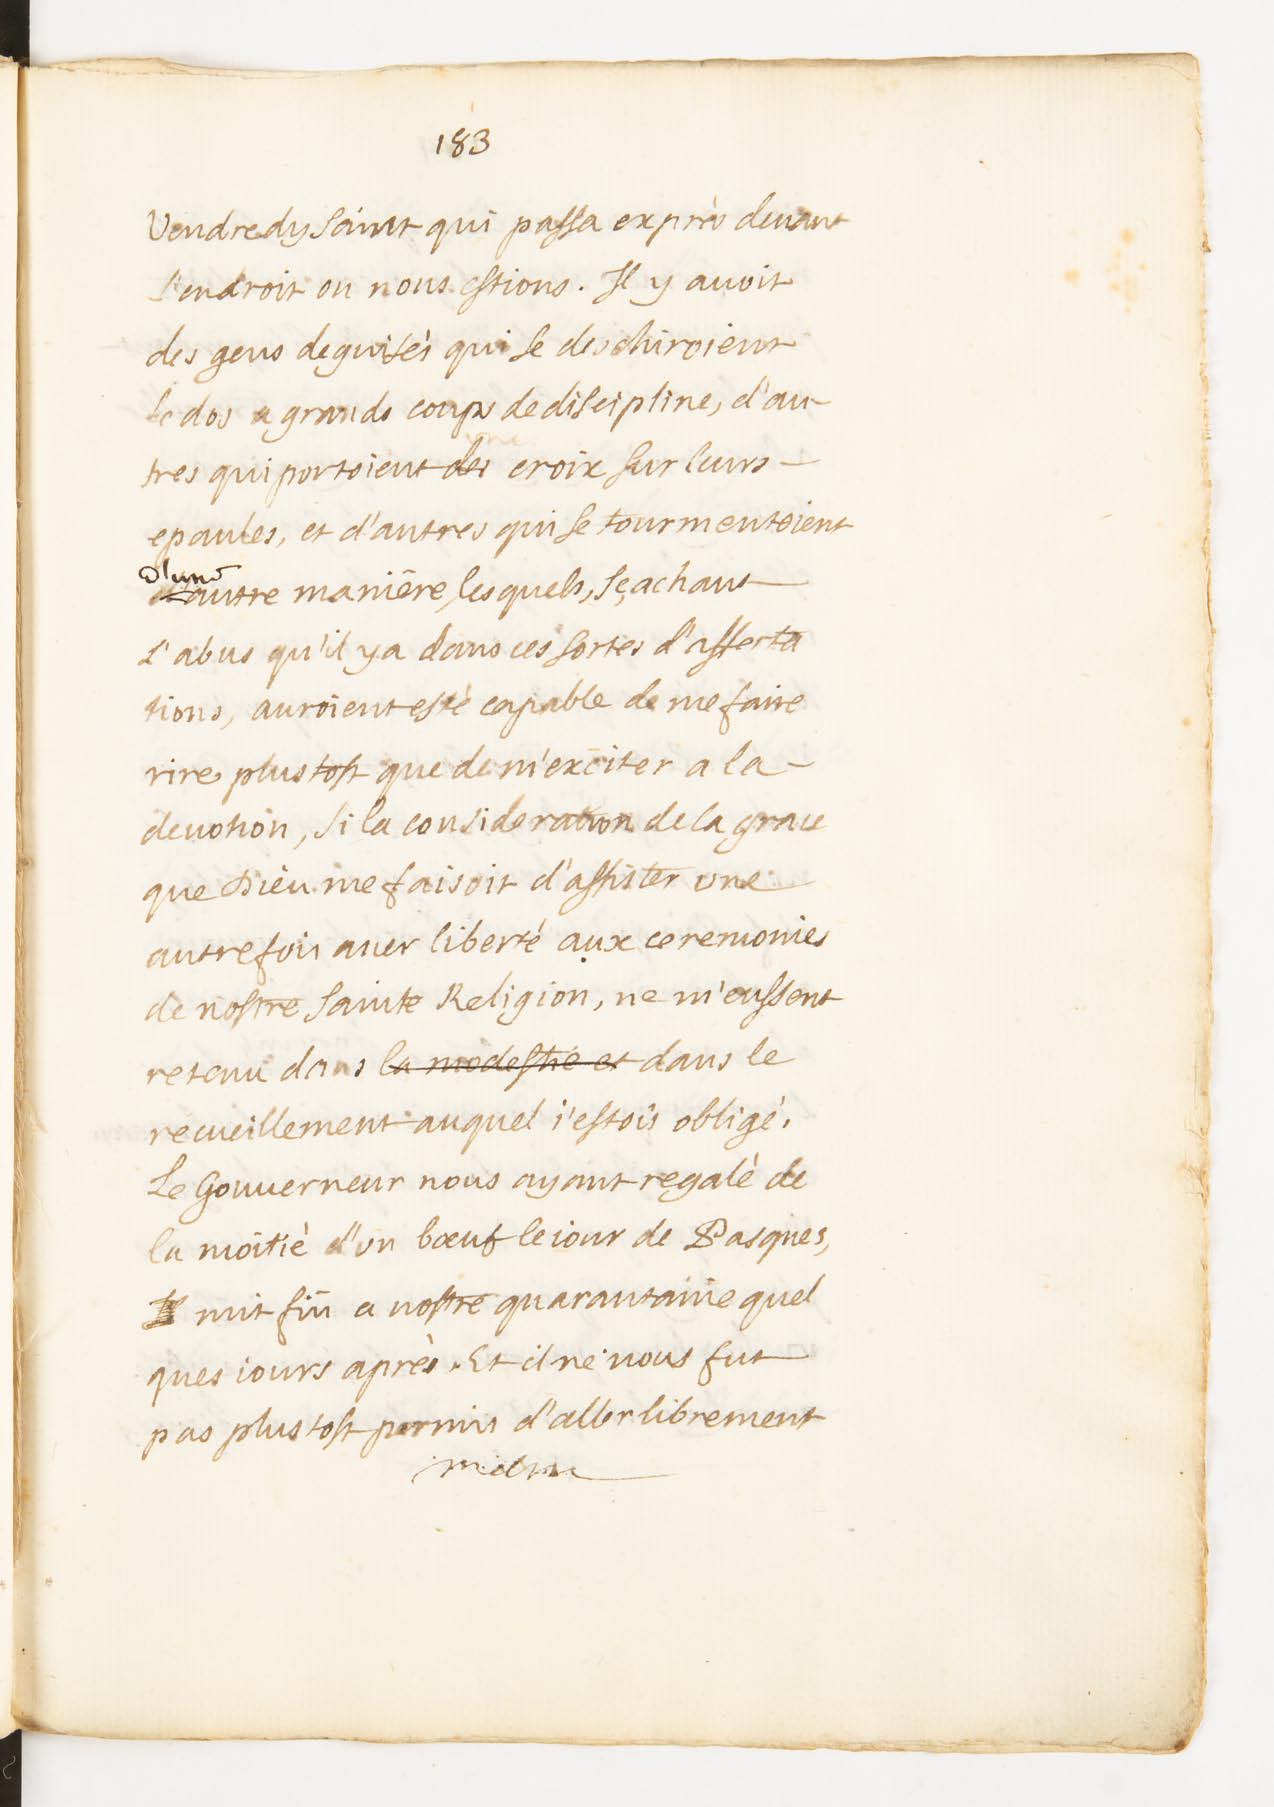 183
Vendredy Saint qui passa exprès deuant
l'endroit ou nous estions. Il y auoit
des gens deguisés qui se deschiroient
le dos a grands coups de discipline, d'au-
tres qui portoient des croix sur leurs
epaules, et d'autres qui se tourmentoient
d'une
autre maniere, lesquels, sçachant
l'abus qu'il y a dans ces sortes d'affecta
tions, auroient esté capable de me faire
rire plustost que de m'exciter a la
deuotion, si la consideration de la grace
que Dieu me faisoit d'assister une
autrefois auec liberté aux ceremonies
de nostre Sainte Religion, ne m'eussent
retenu dans la modestie et dans le
recueillement auquel i'estois obligé.
Le Gouuerneur nous ayant regalé de
la moitié d'un bœuf le iour de Pasques,
Il mit fin a nostre quarantaine quel
ques iours après. Et il ne nous fut
pas plustost permis d'aller librement